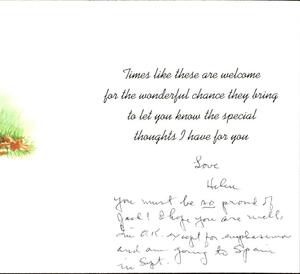 Times like these are welcome
for the wonderful chance they bring
to let you know the special
thoughts I have for you
Love
Helen
You must be so proud of
Jack! I hope you are well,
I'm O.K. except for emphysema
and am going to Spain
in Sept.